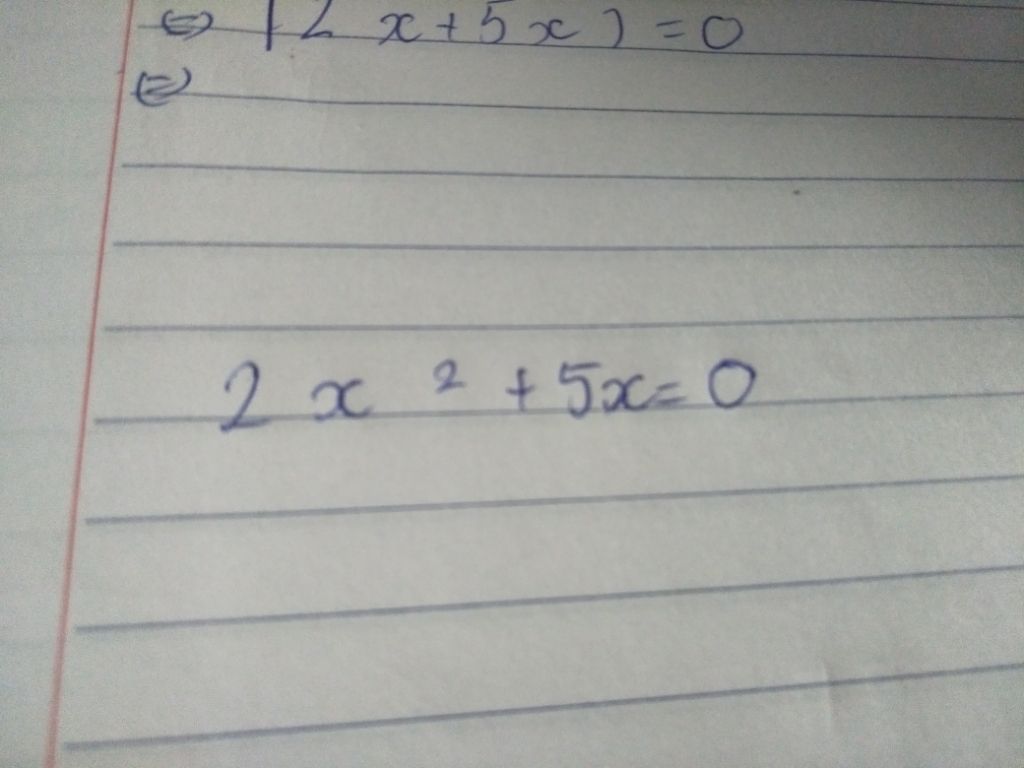 ⇔ (2x+5x) = 0
⇔
2x² + 5x = 0